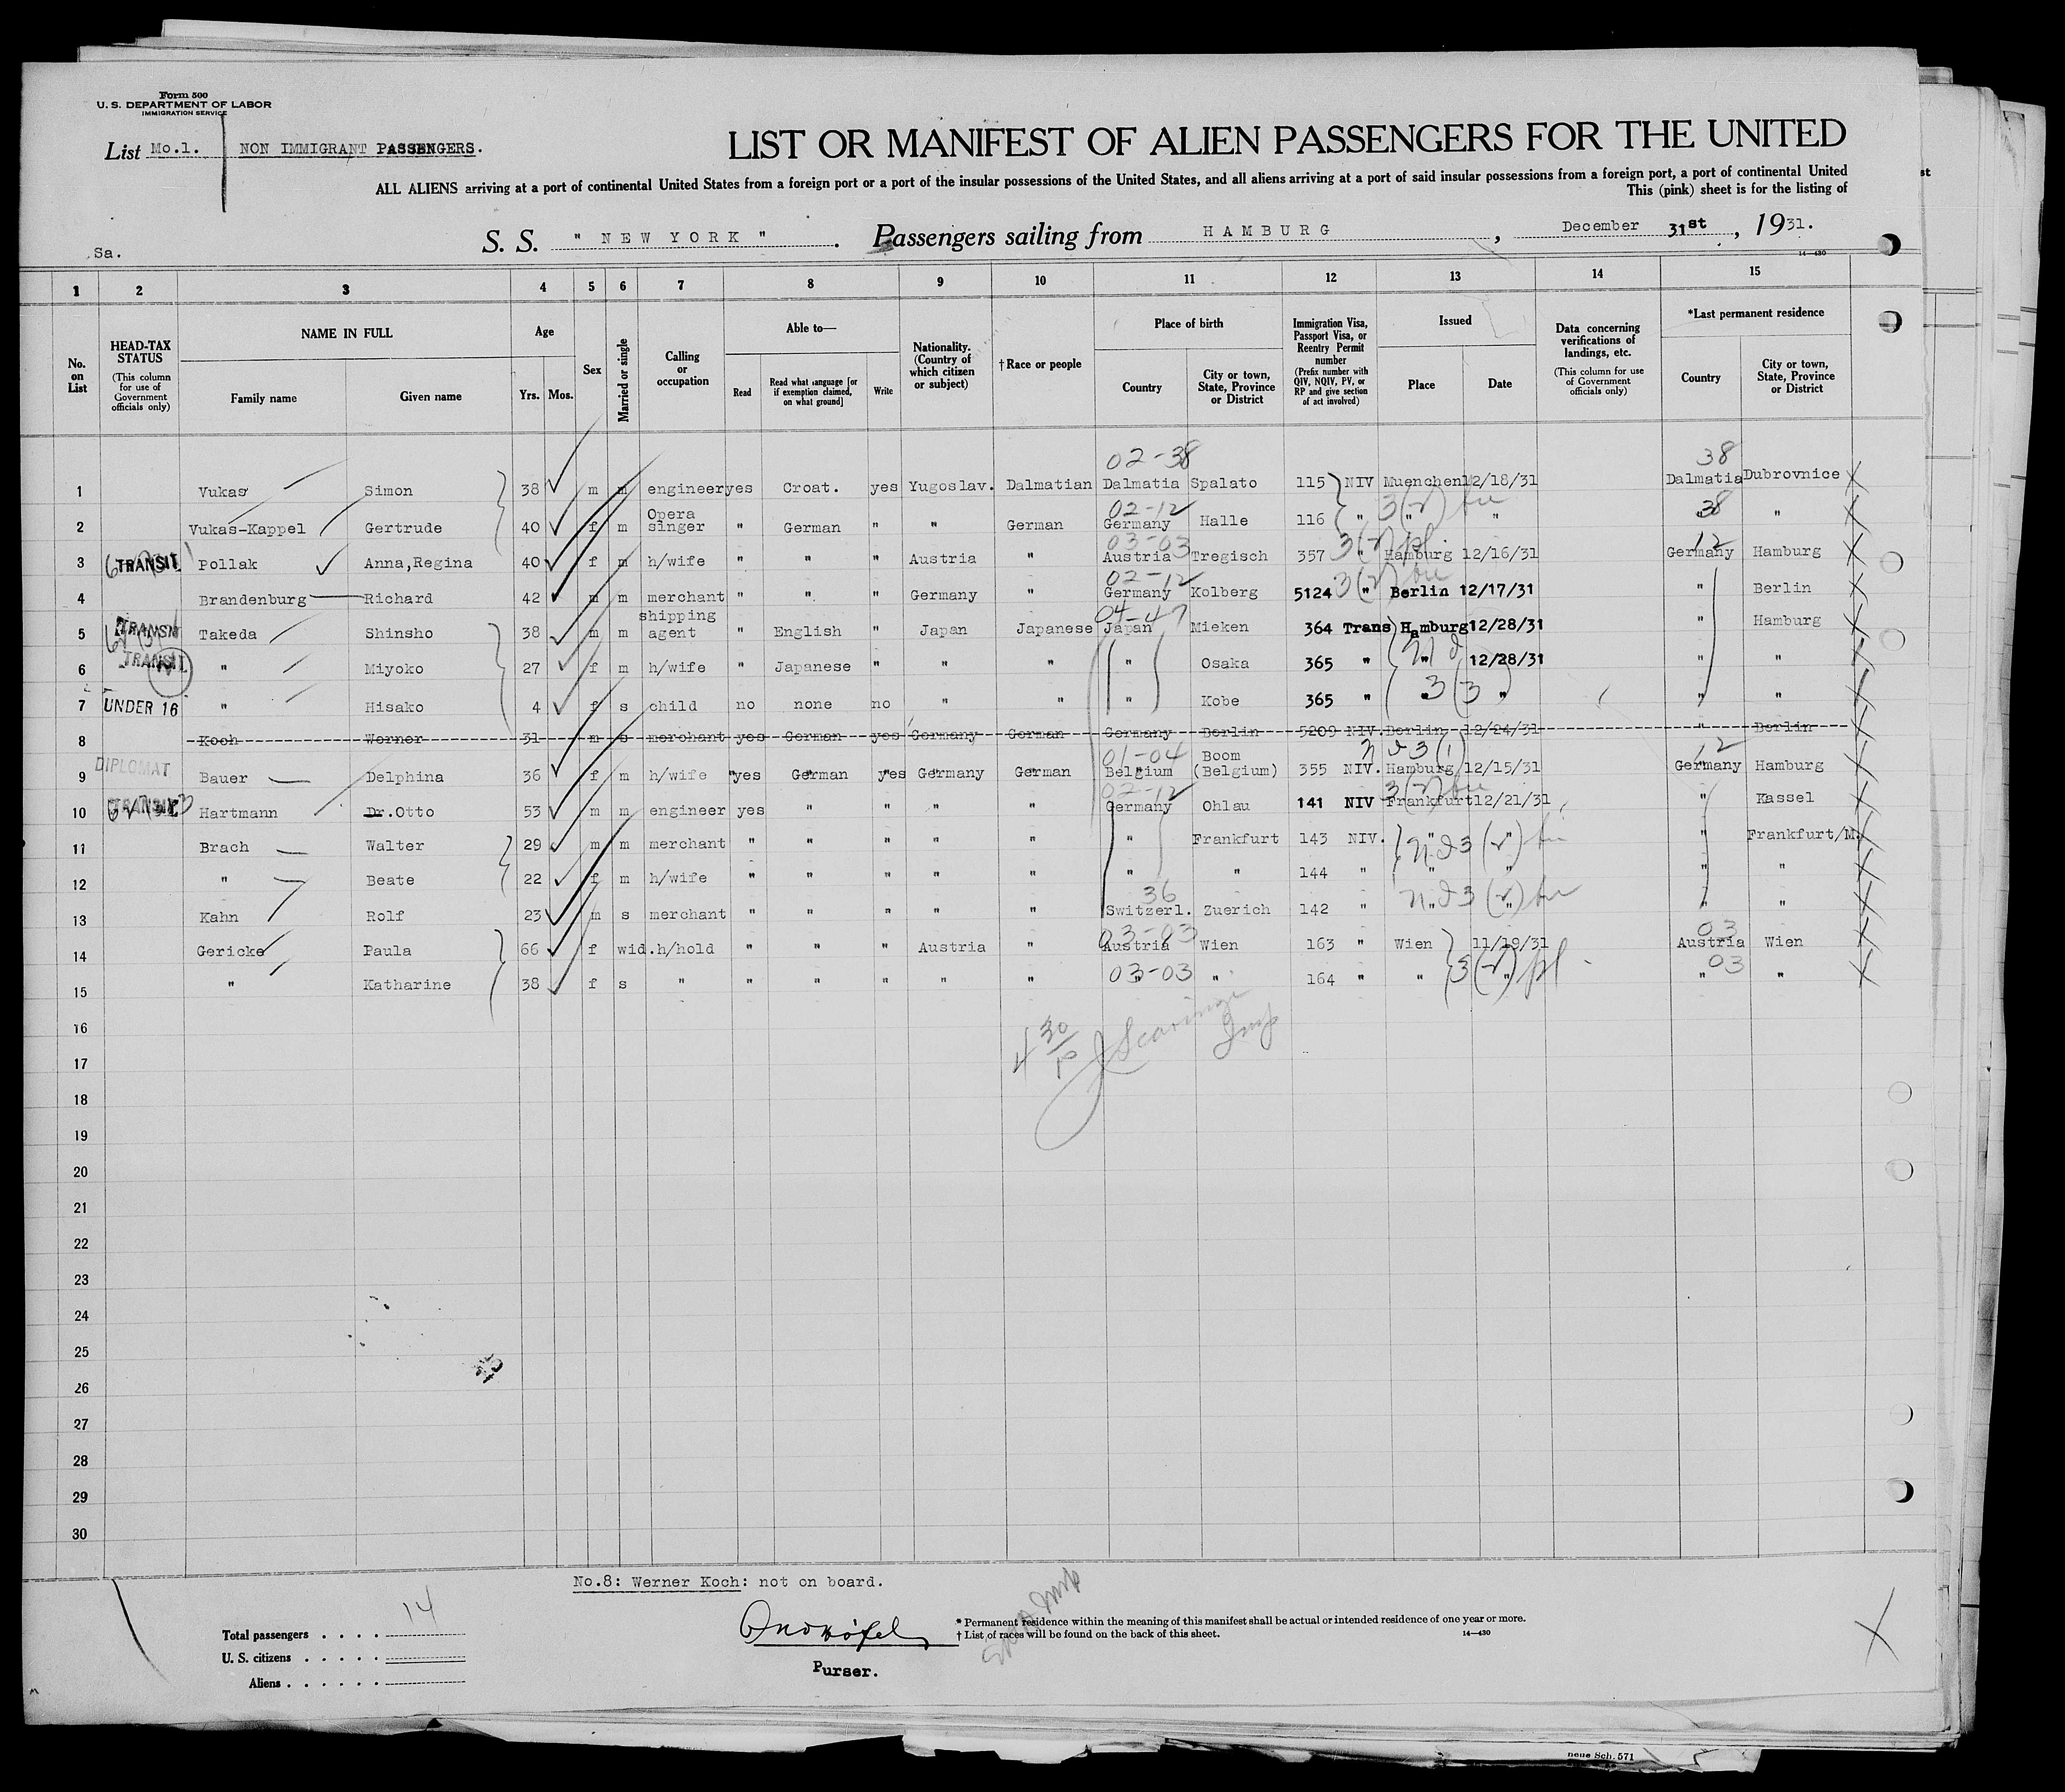 Form 500
U. S. DEPARTMENT OF LABOR
IMMIGRATION SERVICE
List Mo.1. NON IMMIGRANT PASSENGERS.
LIST OR MANIFEST OF ALIEN PASSENGERS FOR THE UNITED
ALL ALIENS arriving at a port of continental United States from a foreign port or a port of the insular possessions of the United States, and all aliens arriving at a port of said insular possessions from a foreign port, a port of continental United
st
This (pink) sheet is for the listing of
Sa.
S. S. " NEW YORK " . Passengers sailing from HAMBURG , December 31st , 1931.
14—430
1 2 3 4 5 6 7 8 9 10 11 12 13 14 15
No. on List
HEAD-TAX STATUS (This column for use of Government officials only)
NAME IN FULL Family name Given name
Age Yrs. Mos.
Sex
Married or single
Calling or occupation
Able to— Read Read what language [or if exemption claimed, on what ground] Write
Nationality. (Country of which citizen or subject)
†Race or people
Place of birth Country City or town, State, Province or District
Immigration Visa, Passport Visa, or Reentry Permit number (Prefix number with QIV, NQIV, PV, or RP and give section of act involved)
Issued Place Date
Data concerning verifications of landings, etc. (This column for use of Government officials only)
*Last permanent residence Country City or town, State, Province or District
02-38 38
1 Vukas Simon 38 m m engineer yes Croat. yes Yugoslav. Dalmatian Dalmatia Spalato 115 NIV Muenchen 12/18/31 Dalmatia Dubrovnice
02-12 38
2 Vukas-Kappel Gertrude 40 f m Opera singer " German " " German Germany Halle 116 " " " " "
03-03 12
3 TRANSIT Pollak Anna,Regina 40 f m h/wife " " " Austria " Austria Tregisch 357 " Hamburg 12/16/31 Germany Hamburg
02-12
4 Brandenburg Richard 42 m m merchant " " " Germany " Germany Kolberg 5124 " Berlin 12/17/31 " Berlin
04-47
5 TRANSIT Takeda Shinsho 38 m m shipping agent " English " Japan Japanese Japan Mieken 364 Trans Hamburg 12/28/31 " Hamburg
6 TRANSIT " Miyoko 27 f m h/wife " Japanese " " " " Osaka 365 " " 12/28/31 " "
3(3)
7 UNDER 16 " Hisako 4 f s child no none no " " " Kobe 365 " " " " "
8 Koch Werner 31 m s merchant yes German yes Germany German Germany Berlin 5209 NIV. Berlin 12/24/31 " Berlin
01-04 12
9 DIPLOMAT Bauer Delphina 36 f m h/wife "yes German yes Germany German Belgium Boom (Belgium) 355 NIV. Hamburg 12/15/31 Germany Hamburg
02-12
10 TRANSIT Hartmann Dr.Otto 53 m m engineer yes " " " " Germany Ohlau 141 NIV Frankfurt 12/21/31 " Kassel
11 Brach Walter 29 m m merchant " " " " " " Frankfurt 143 NIV. " " " Frankfurt/M.
12 " Beate 22 f m h/wife " " " " " " " 144 " " " " "
36
13 Kahn Rolf 23 m s merchant " " " " " Switzerl. Zuerich 142 " " " " "
03-03 03
14 Gericke Paula 66 f wid. h/hold " " " Austria " Austria Wien 163 " Wien 11/19/31 Austria Wien
03-03 03
15 " Katharine 38 f s " " " " " " " " 164 " " " " "
16
17
18
19
20
21
22
23
24
25
26
27
28
29
30
No.8: Werner Koch: not on board.
Total passengers . . . . 14
U. S. citizens . . . . .
Aliens . . . . . .
Purser.
* Permanent residence within the meaning of this manifest shall be actual or intended residence of one year or more.
† List of races will be found on the back of this sheet.
14—430
neue Sch. 571